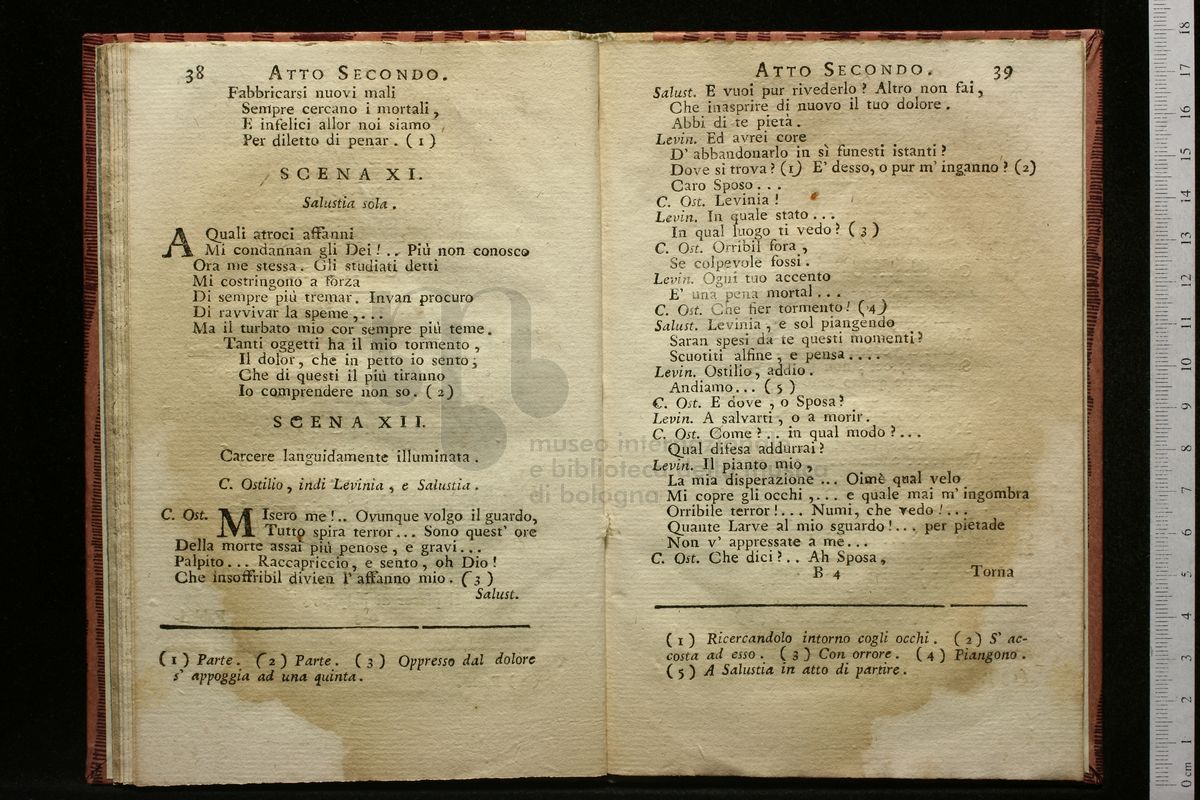 38 ATTO SECONDO.
Fabbricarsi nuovi mali
Sempre cercano i mortali,
E infelici allor noi siamo
Per diletto di penar. (1)
SCENA XI.
Salustia sola.
A Quali atroci affanni
Mi condannan gli Dei!.. Più non conosco
Ora me stessa. Gli studiati detti
Mi costringono a forza
Di sempre più tremar. Invan procuro
Di ravvivar la speme,...
Ma il turbato mio cor sempre più teme.
Tanti oggetti ha il mio tormento,
Il dolor, che in petto io sento;
Che di questi il più tiranno
Io comprendere non so. (2)
SCENA XII.
Carcere languidamente illuminata.
C. Ostilio, indi Levinia, e Salustia.
C. Ost. MIsero me!.. Ovunque volgo il guardo,
Tutto spira terror... Sono quest' ore
Della morte assai più penose, e gravi...
Palpito... Raccapriccio, e sento, oh Dio!
Che insoffribil divien l'affanno mio. (3)
Salust.
(1) Parte. (2) Parte. (3) Oppresso dal dolore
s' appoggia ad una quinta.
ATTO SECONDO. 39
Salust. E vuoi pur rivederlo? Altro non fai,
Che inasprire di nuovo il tuo dolore.
Abbi di te pietà.
Levin. Ed avrei core
D' abbandonarlo in sì funesti istanti?
Dove si trova? (1) E' desso, o pur m' inganno? (2)
Caro Sposo...
C. Ost. Levinia!
Levin. In quale stato...
In qual luogo ti vedo? (3)
C. Ost. Orribil fora,
Se colpevole fossi.
Levin. Ogni tuo accento
E' una pena mortal...
C. Ost. Che fier tormento! (4)
Salust. Levinia, e sol piangendo
Saran spesi da te questi momenti?
Scuotiti alfine, e pensa....
Levin. Ostilio, addio.
Andiamo... (5)
C. Ost. E dove, o Sposa?
Levin. A salvarti, o a morir.
C. Ost. Come?.. in qual modo?...
Qual difesa addurrai?
Levin. Il pianto mio,
La mia disperazione... Oimè qual velo
Mi copre gli occhi,... e quale mai m' ingombra
Orribile terror!... Numi, che vedo!...
Quante Larve al mio sguardo!... per pietade
Non v' appressate a me...
C. Ost. Che dici?.. Ah Sposa,
B 4 Torna
(1) Ricercandolo intorno cogli occhi. (2) S' ac-
costa ad esso. (3) Con orrore. (4) Piangono.
(5) A Salustia in atto di partire.
museo internazionale
e biblioteca della musica
di bologna
0 cm 1 2 3 4 5 6 7 8 9 10 11 12 13 14 15 16 17 18